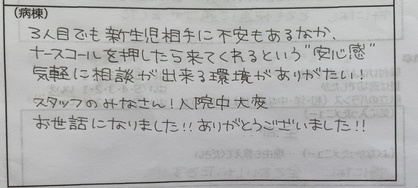 (病棟)
3人目でも新生児相手に不安もあるなか、
ナースコールを押したら来てくれるという"安心感"
気軽に相談が出来る環境がありがたい!
スタッフのみなさん!入院中大変
お世話になりました!!ありがとうございました!!